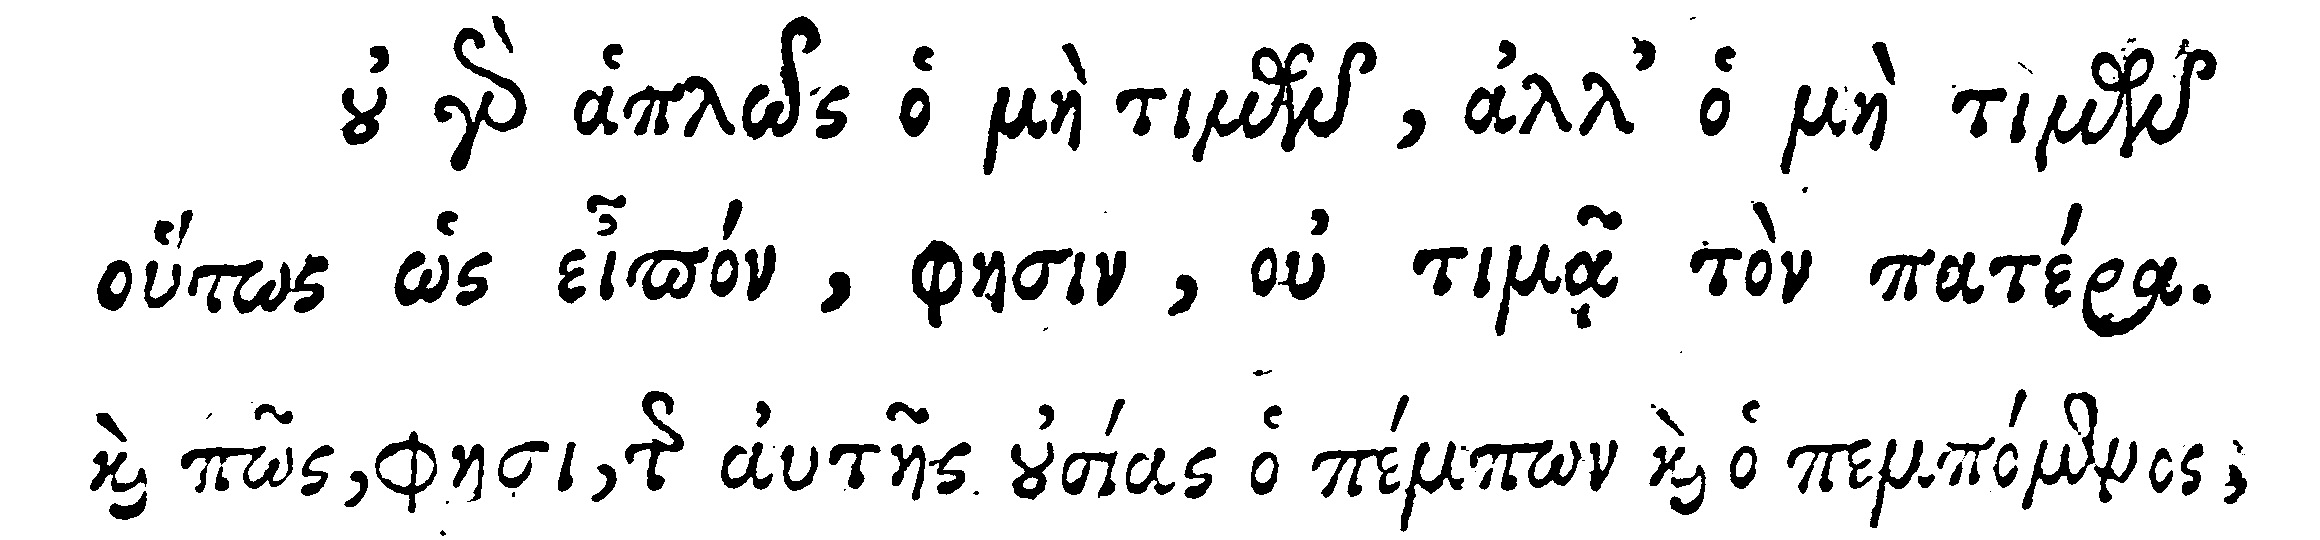 οὐ γὰρ ἁπλῶς ὁ μὴ τιμῶν, ἀλλ' ὁ μὴ τιμῶν
οὕτως ὡς εἶπόν, φησιν, οὐ τιμᾷ τὸν πατέρα.
καὶ πῶς, φησι, τῆς αὐτῆς οὐσίας ὁ πέμπων καὶ ὁ πεμπόμενος;